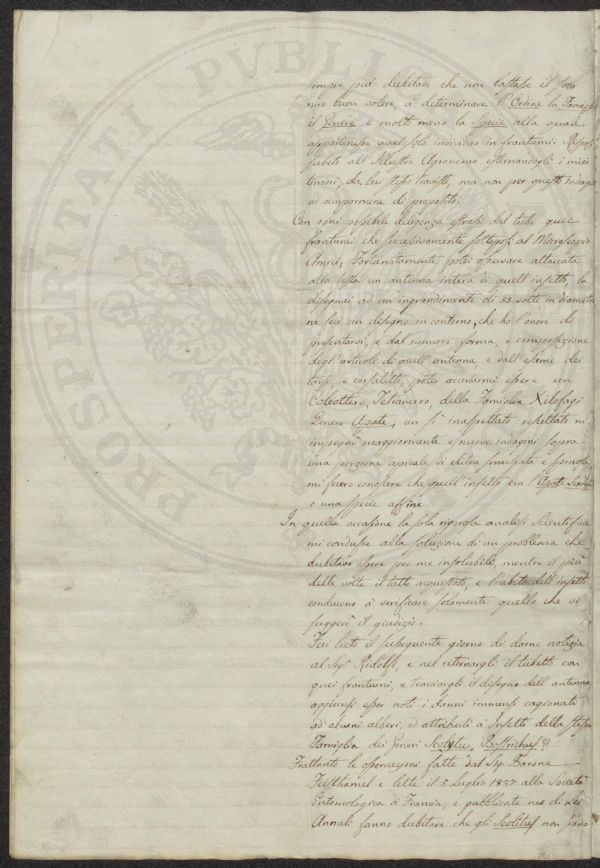 PROSPERITATI PVBLIC
sempre più dubitavo che non bastasse il solo
mio buon volere, a determinare l'Ordine la Famiglia
il Genere e molto meno la specie alla quale
appartenesse quel solo individuo in frantumi. Risposi
subito all'Illustre Agronomo esternandogli i miei
timori, da lui stesso ma non per questo
ad occuparmene di proposito.
Con ogni possibile diligenza estrassi dal tubo quei
frantumi che successivamente sottoposi al Microscopio
Amici; Fortunatamente potei osservare attaccata
alla testa un antenna intera di quell'insetto, la
disegnai ad un ingrandimento di 53 volte in diametro
ne feci un disegno in contorno, che ho l'onore di
presentarvi, e dal numero, forma, e composizione
degli articoli di quell'antenna, e dall'esame dei
tarsi, e corsaletto, potei accertarmi essere un
Coleottero, Tetramero, della Famiglia Xilofagi
Genere Apate; un sì inaspettato resultato mi
impegnò maggiormente e nuove indagini sopra
una porzione apicale di elitra smussata e spinosa,
mi fecero conoscere che quell'insetto era l'Apate
o una specie affine.
In quella occasione la sola rigorosa analisi Scientifica
mi condusse alla soluzione di un problema che
dubitavo essere per me insolubile, mentre il più
delle volte il tatto acquistato, e l'abito dell'insetto
conducono a verificare solamente quello che vi
suggerì il giudizio.
Fui lieto il susseguente giorno di darne notizia
al Sig. Ridolfi, e nel retornargli il tubetto con
quei frantumi, e tracciargli il disegno dell'antenna,
aggiunsi esser noti i danni immensi cagionati
ad alcuni alberi, ed attribuiti a Insetti della stessa
Famiglia dei Generi Scolytus, Bostrichus
Frattanto le osservazioni fatte dal Sig. Barone
Feisthamel e lette il 5 Luglio 1837 alla Società
Entomologica di Francia, e pubblicate nei di Lei
Annali fanno dubitare che gli Scolitus non siano